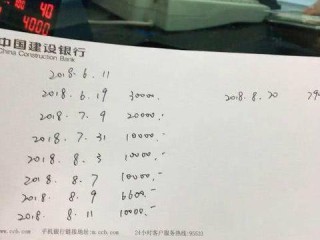 40
4000
中国建设银行
China Construction Bank
2018.6.11
2018.6.19 30000.-
2018.8.20
2018.7.9 20000.-
2018.7.31 10000.-
2018.8.3 10000.-
2018.8.7 10000.-
2018.8.9 6600.-
2018.8.11 10000.-
www.ccb.com 手机银行链接地址:m.ccb.com 24小时客户服务热线:95533